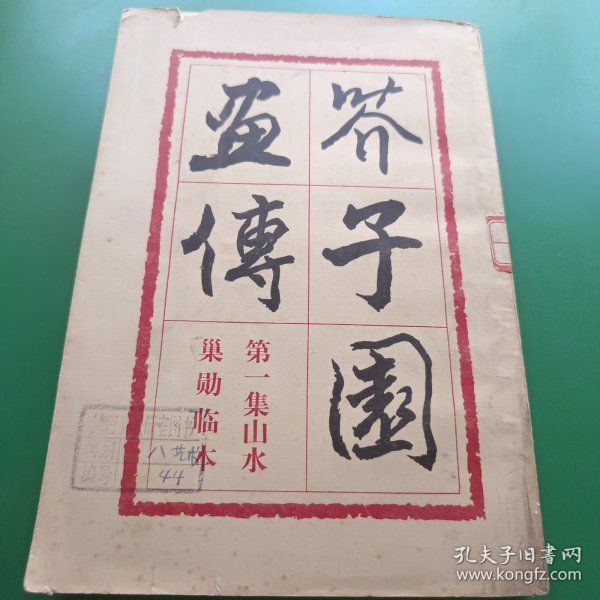 芥子園
畫傳
第一集山水
巢勛临本
类别
编号 44
孔夫子旧书网
www.kongfz.com